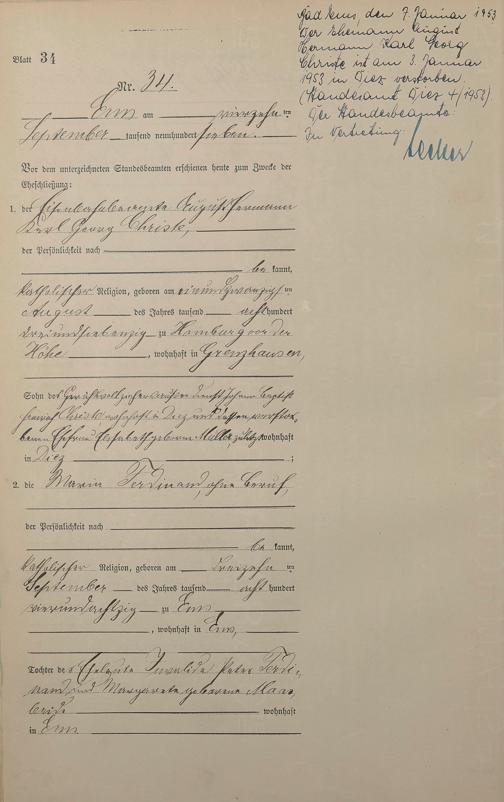 Bad Ems, den 7. Januar 1953
Der Ehemann August
Hermann Karl Georg
Christe ist am 3. Januar
1953 in Diez verstorben.
(Standesamt Diez 4/1953)
Der Standesbeamte:
In Vertretung:
Blatt 34
Nr. 34.
Ems am vierzehnten
September tausend neunhundert sieben.
Vor dem unterzeichneten Standesbeamten erschienen heute zum Zwecke der
Eheschließung:
1. der Eisenbahnbeamte August Hermann
Karl Georg Christe,
der Persönlichkeit nach
be kannt,
katholischer Religion, geboren am einundzwanzigsten
August des Jahres tausend acht hundert
dreiundsiebenzig zu Homburg vor der
Höhe, wohnhaft in Grenzhausen,
Sohn des Gerichtsvollziehers außer Dienst Johann Baptist
Christe wohnhaft in Diez und dessen verstor-
benen Ehefrau Elisabeth geborenen Müller, zuletzt wohnhaft
in Diez ;
2. die Maria Ferdinand, ohne Beruf,
der Persönlichkeit nach
be kannt,
katholischer Religion, geboren am dreizehnten
September des Jahres tausend acht hundert
vierundachtzig zu Ems
, wohnhaft in Ems,
Tochter der Eheleute Invalide Peter Ferdi-
nand und Margareta geborene Maas,
beide wohnhaft
in Ems